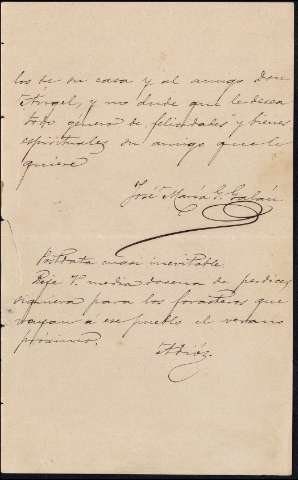 los de su casa y al amigo don
Ángel, y no dude que le desea
todo género de felicidades y bienes
espirituales su amigo que le
quiere
José María G. Galán
Postdata casi inevitable
Deje V. media docena de perdices
siquiera para los forasteros que
vayan á ese pueblo el verano
próximo.
Adiós.